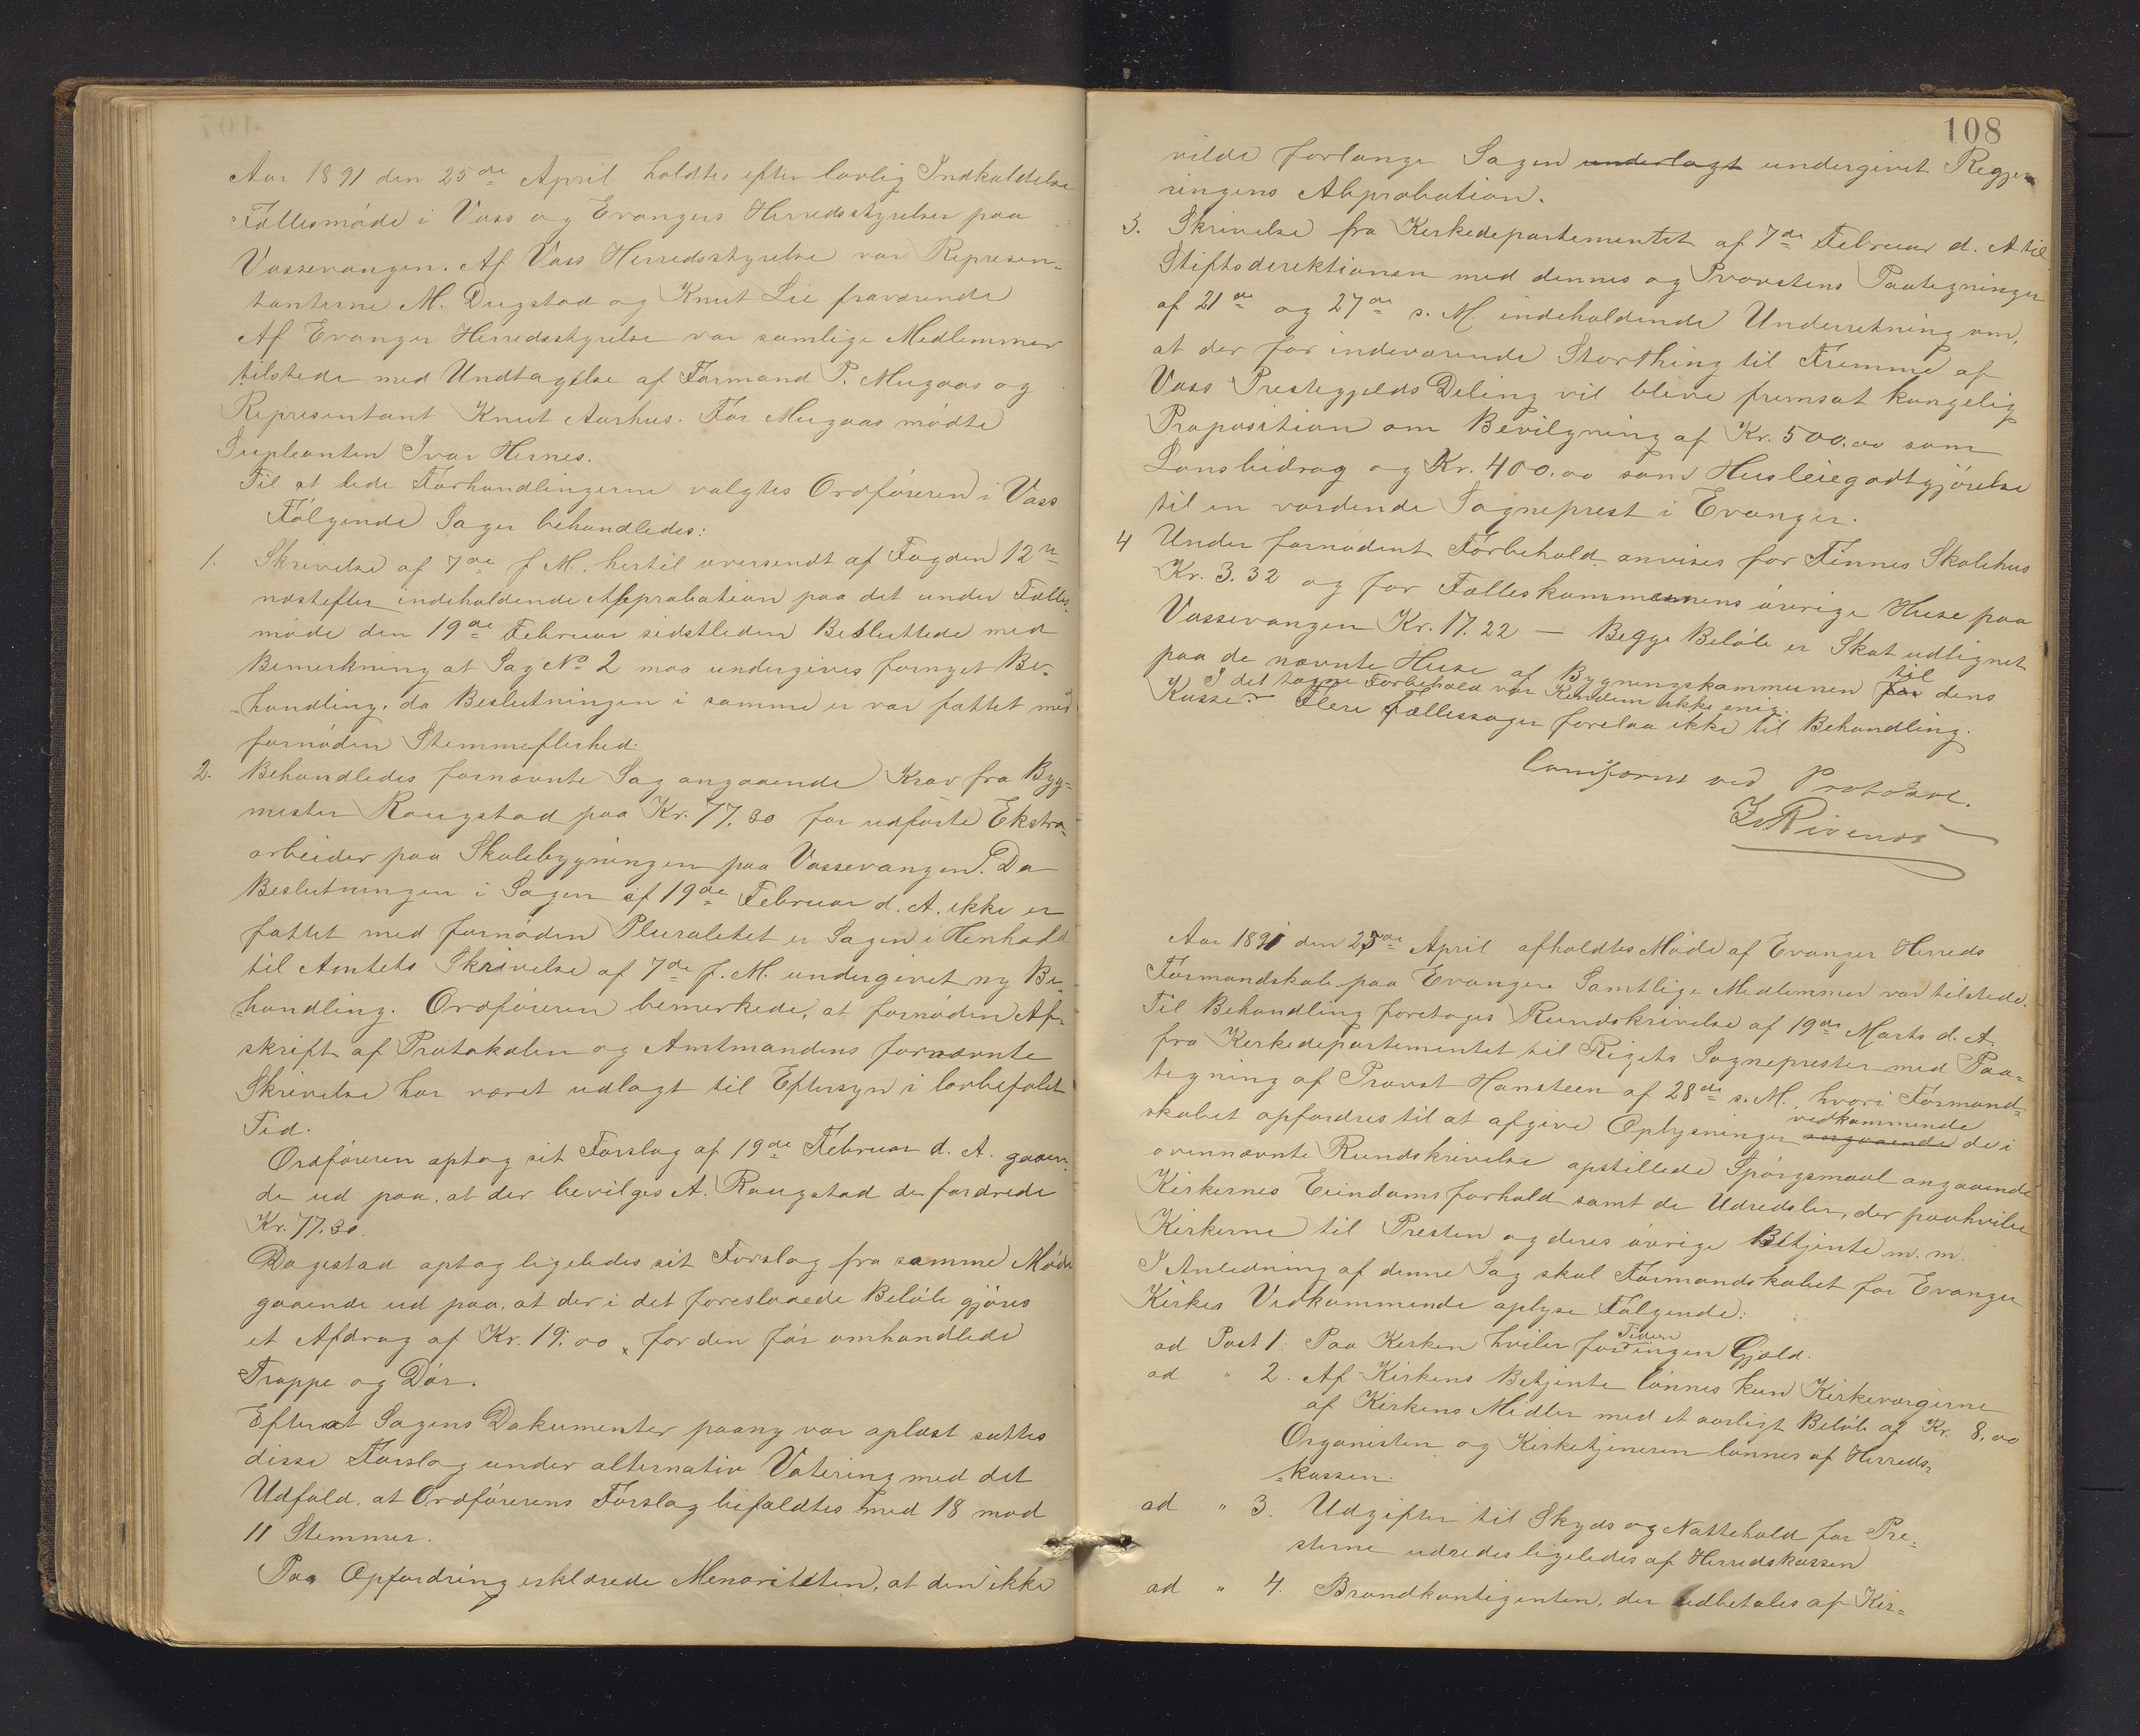 Aar 1891 den 25de April holdtes efter lovlig Indkaldelse
Fællesmöde i Voss og Evangers Herredsstyrelser paa
Vossevangen. Af Voss Herredsstyrelse var Represen-
tanterne M. Dugstad og Knut Lie fraværende
Af Evanger Herredsstyrelse var samlige Medlemmer
tilstede med Undtagelse af Formand P. Mugaas og
Representant Knut Aarhus. For Mugaas mödte
Supleanten Ivar Hernes.
Til at lede Forhandlingerne valgtes Ordföreren i Voss
Fölgende Sager behandledes:
1. Skrivelse af 7de f. M. hertil oversendt af Fogden 12te
næstefter indeholdende Approbation paa det under Fælles-
möde den 19de Februar sidstleden Besluttede med
Bemerkning at Sag No 2 maa undergives fornyet Be-
handling, da Beslutningen i samme er var fattet med
fornöden Stemmeflerhed.
2. Behandledes fornævnte Sag angaaende Krav fra Byg-
mester Rougstad paa Kr. 77.30 for udförte Ekstra-
arbeider paa Skolebygningen paa Vossevangen. Da
Beslutningen i Sagen af 19de Februar d. A. ikke er
fattet med fornöden Pluralitet er Sagen i Henhold
til Amtets Skrivelse af 7de f. M. undergivet ny Be-
handling. Ordföreren bemerkede, at fornöden Af-
skrift af Protokolen og Amtmandens fornævnte
Skrivelse har været udlagt til Eftersyn i lovbefalet
Tid.
Ordföreren optog sit Forslag af 19de Februar d. A. gaaen-
de ud paa, at der bevilges A. Rougstad de fordrede
Kr. 77.30.
Dagestad optog ligeledes sit Forslag fra samme Möde
gaaende ud paa, at der i det foreslaaede Belöb gjöres
et Afdrag af Kr. 19.00 for den för omhandlede
Trappe og Dör.
Efterat Sagens Dokumenter paany var oplæst sattes
disse Forslag under alternativ Votering med det
Udfald, at Ordförerens Forslag bifaldtes med 18 mod
11 Stemmer.
Paa Opfordring erklærede Menoriteten, at den ikke
108
vilde forlange Sagen underlagt undergivet Regje-
ringens Abprobation.
3. Skrivelse fra Kirkedepartementet af 7de Februar d. A til
Stiftsdirektionen med dennes og Provstens Paategninger
af 21de og 27de s. M. indeholdende Underretning om,
at der for indeværende Storthing til Fremme af
Voss Prestegjelds Deling vil blive fremsat kongelig
Proposition om Bevilgning af Kr. 500.00 som
Lönsbidrag og Kr. 400.00 som Husleiegodtgjörelse
til en vordende Sogneprest i Evanger.
4 Under fornödent Forbehold anvises for Finnes Skolehus
Kr. 3.32 og for Fælleskommunens övrige Huse paa
Vossevangen Kr. 17.22 — Begge Belöb er Skat udlignet
paa de nævnte Huse af Bygningskommunen for til dens
I det tagne Forbehold var Kindem ikke enig.
Kasse. — Flere Fællessager forelaa ikke til Behandling.
Conform ved Protokol.
Aar 1891 den 25de April afholdtes Möde af Evanger Herreds
Formandskab paa Evanger. Samtlige Medlemmer var tilstede.
Til Behandling foretoges Rundskrivelse af 19de Marts d. A.
fra Kirkedepartementet til Rigets Sogneprester med Paa-
tegning af Provst Hansteen af 28de s. M., hvori Formand-
skabet opfordres til at afgive Oplysninger angaaende vedkommende de i
ovennævnte Rundskrivelse opstillede Spörgsmaal angaaende
Kirkernes Eiendomsforhold samt de Udredsler, der paahviler
Kirkerne til Presten og deres övrige Betjente m. m.
I Anledning af denne Sag skal Formandskabet for Evanger
Kirkes Vedkommende oplyse Fölgende:
ad Post 1. Paa Kirken hviler for Tiden ingen Gjæld.
ad " 2. Af Kirkens Betjente lönnes kun Kirkevergerne
af Kirkens Midler med et aarligt Belöb af Kr. 8.00
Organisten og Kirketjeneren lönnes af Herreds-
kassen.
ad " 3. Udgifter til Skyds og Nattehold for Pre-
sterne udredes ligeledes af Herredskassen
ad " 4. Brandkontigenten, der udbetales af Kir-